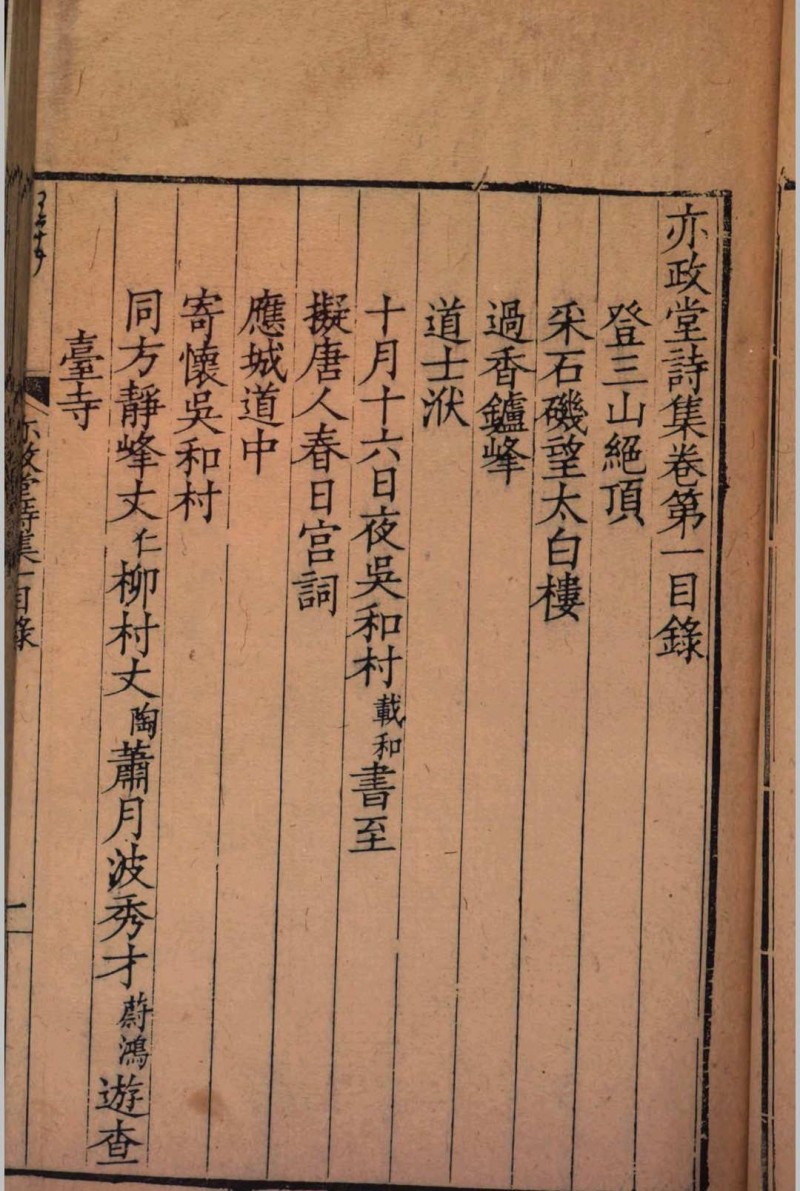 亦政堂詩集卷第一目錄
登三山絕頂
采石磯望太白樓
過香鑪峰
道士洑
十月十六日夜吳和村載和書至
擬唐人春日宮詞
應城道中
寄懷吳和村
同方靜峰丈仁柳村丈陶蕭月波秀才蔚鴻遊查
臺寺
亦政堂詩集一目錄
一